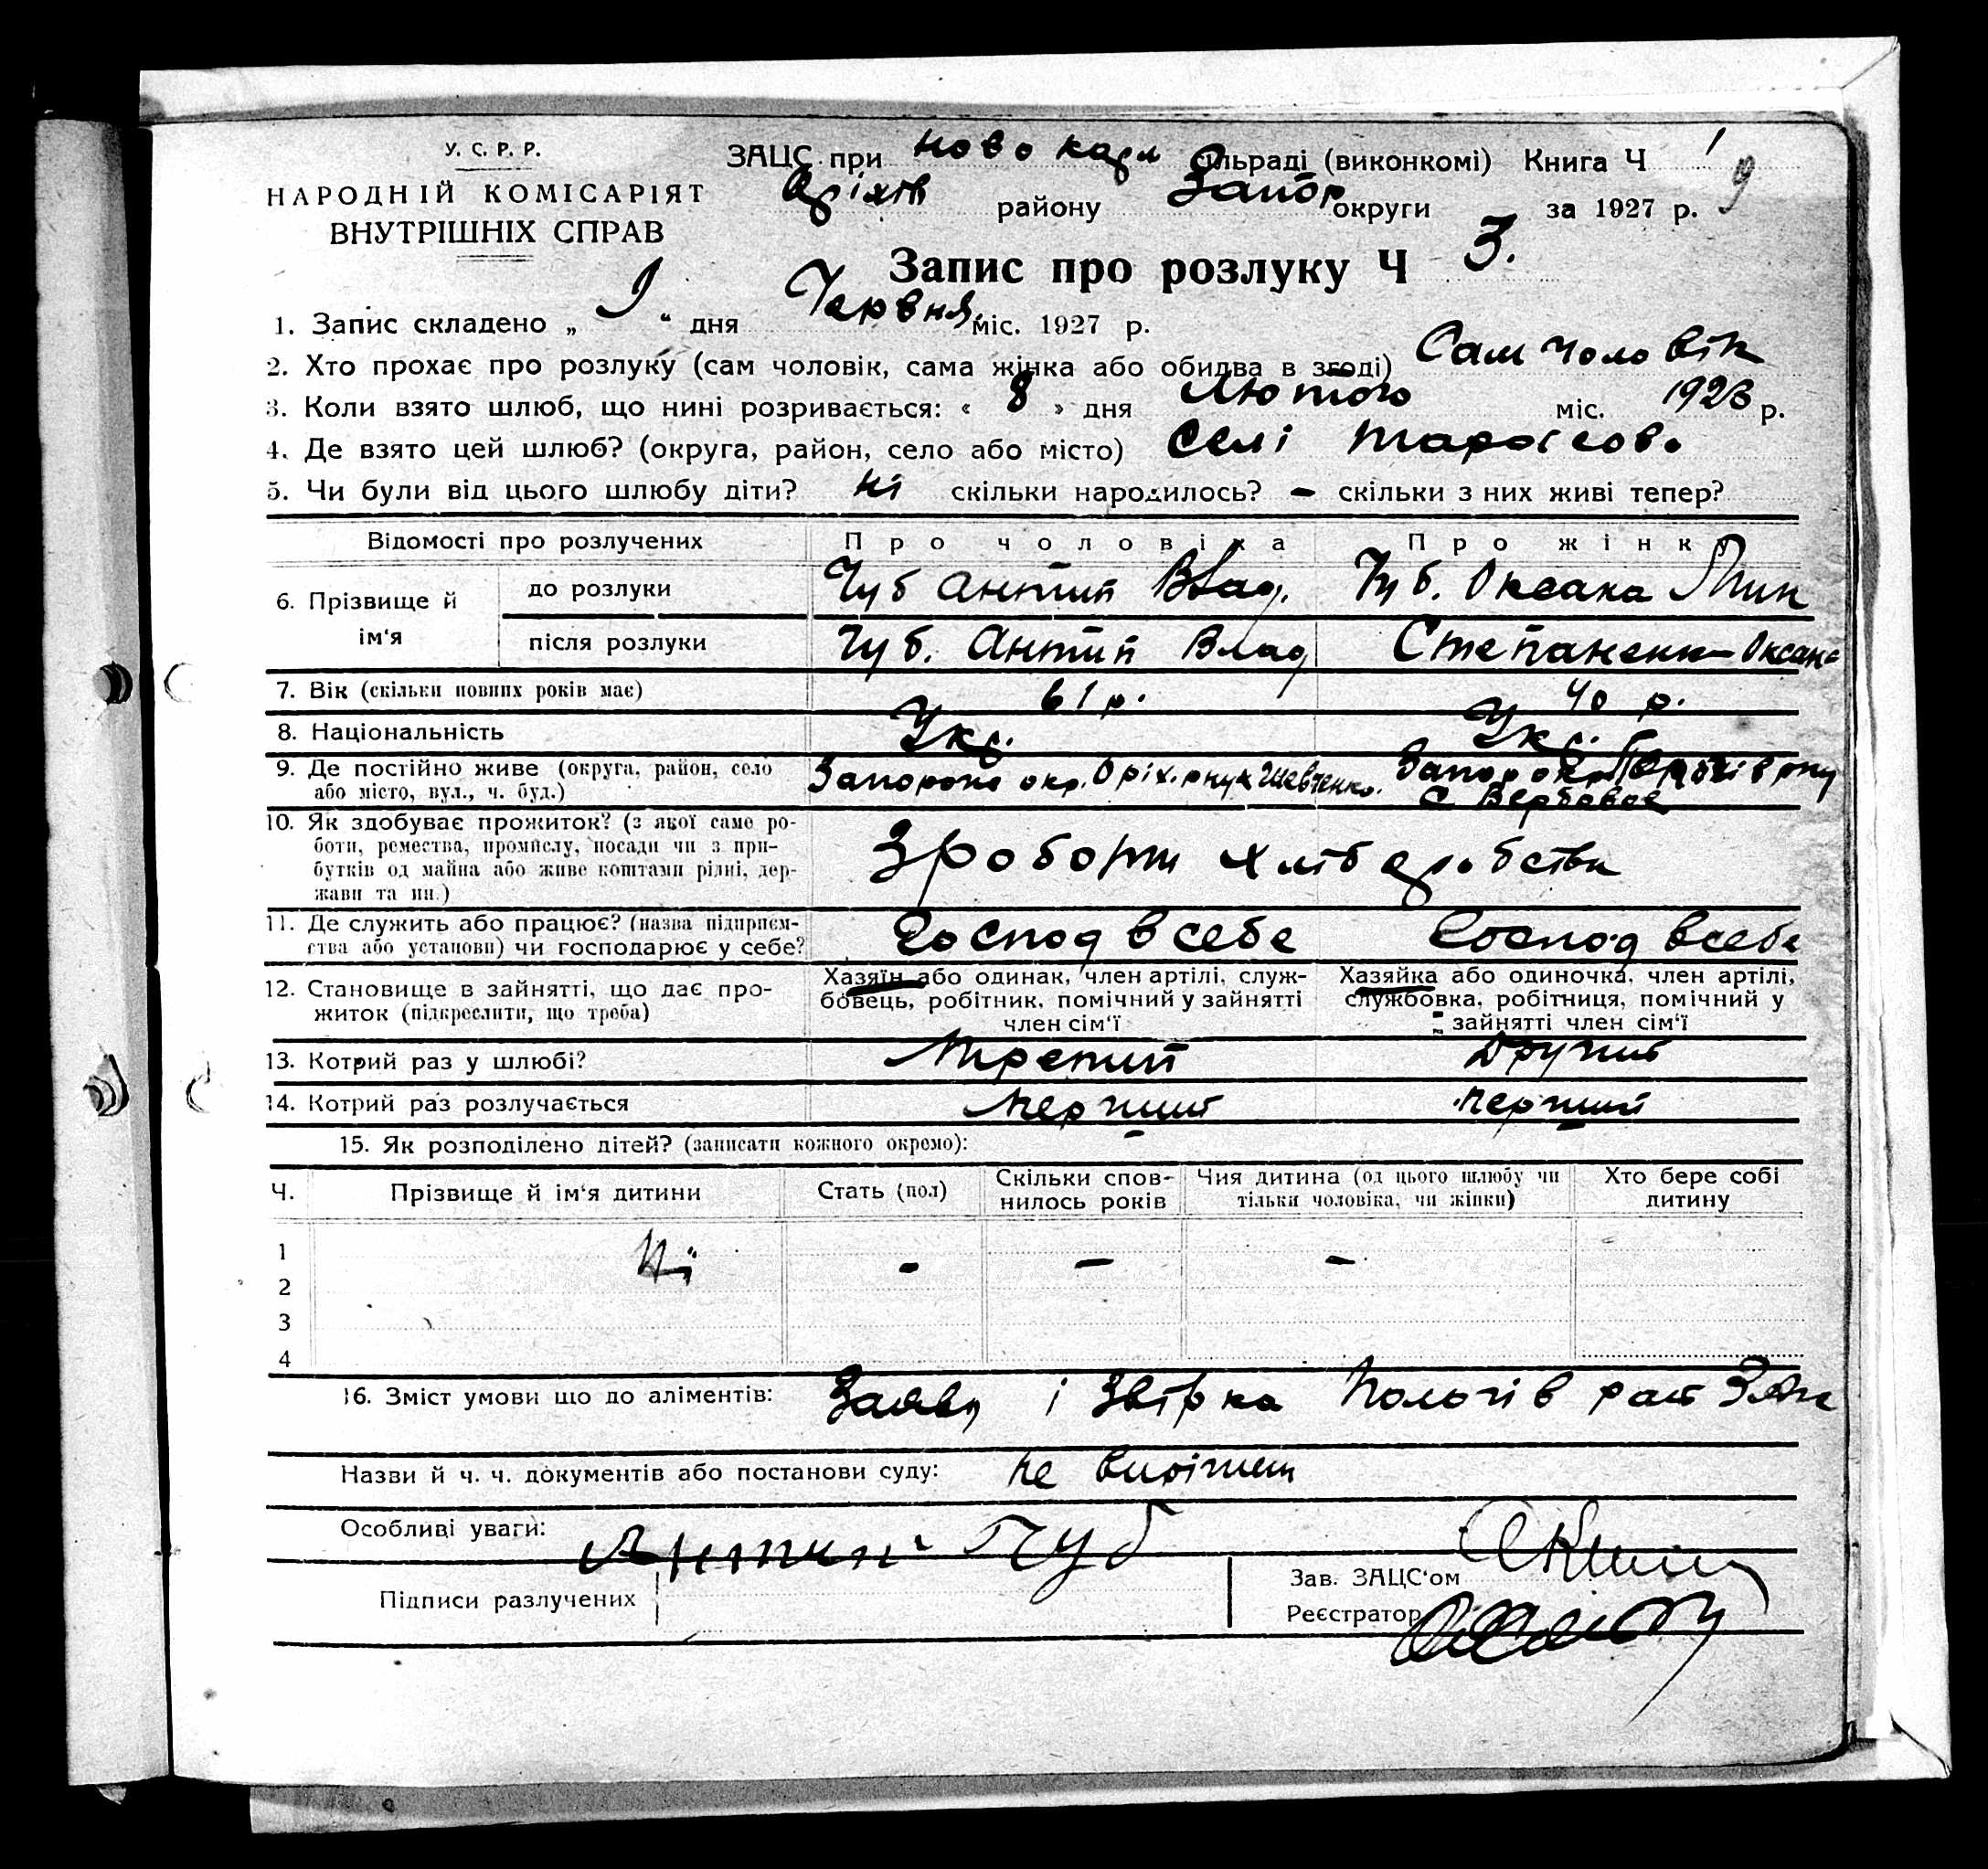 У. С. Р. Р.
НАРОДНІЙ КОМІСАРІЯТ
ВНУТРІШНІХ СПРАВ
ЗАЦС при Ново сільраді (виконкомі) Книга Ч 1
9
Оріхів району Запор округи за 1927 р.
Запис про розлуку Ч 3.
1. Запис складено „ “ дня Червня міс. 1927 р.
2. Хто прохає про розлуку (сам чоловік, сама жінка або обидва в згоді) Сам чоловік
3. Коли взято шлюб, що нині розривається: « 8 » дня Лютого міс. 1923 р.
4. Де взято цей шлюб? (округа, район, село або місто) Селі
5. Чи були від цього шлюбу діти? ні скільки народилось? – скільки з них живі тепер?
Відомості про розлучених Про чоловіка Про жінку
6. Прізвище й ім‘я
до розлуки Чуб Антип Влад. Чуб. Оксана
після розлуки Чуб. Антип Влад Степаненко Оксана
7. Вік (скільки повних років має) 61 р. 40 р.
8. Національність Укр. Укр.
9. Де постійно живе (округа, район, село або місто, вул., ч. буд.) Запорожс окр. Оріх. рну х Шевченко. Запор окр рну с Вербовое
10. Як здобуває прожиток? (з якої саме роботи, ремества, промислу, посади чи з прибутків од майна або живе коштами рідні, держави та ин.) З роботи хліборобства
11. Де служить або працює? (назва підприємства або установи) чи господарює у себе? Господ в себе Господ в себе
12. Становище в зайнятті, що дає прожиток (підкреслити, що треба)
Хазяїн або одинак, член артілі, службовець, робітник, помічний у зайнятті член сім‘ї
Хазяйка або одиночка, член артілі, службовка, робітниця, помічний у зайнятті член сім‘ї
13. Котрий раз у шлюбі? Третий Другий
14. Котрий раз розлучається Перший Перший
15. Як розподілено дітей? (записати кожного окремо):
Ч. Прізвище й ім‘я дитини Стать (пол) Скільки сповнилось років Чия дитина (од цього шлюбу чи тільки чоловіка, чи жінки) Хто бере собі дитину
1 Ні – – –
2
3
4
16. Зміст умови що до аліментів: Заяву і Пологів
Назви й ч. ч. документів або постанови суду: не
Особливі уваги:
Підписи разлучених Антип Чуб
Зав. ЗАЦС‘ом
Реєстратор